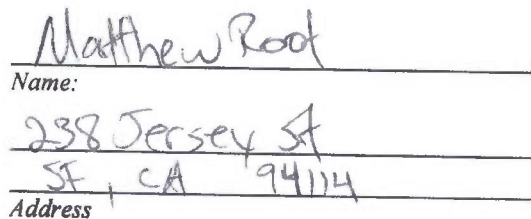 Matthew Root
Name:
238 Jersey St
SF, CA 94114
Address